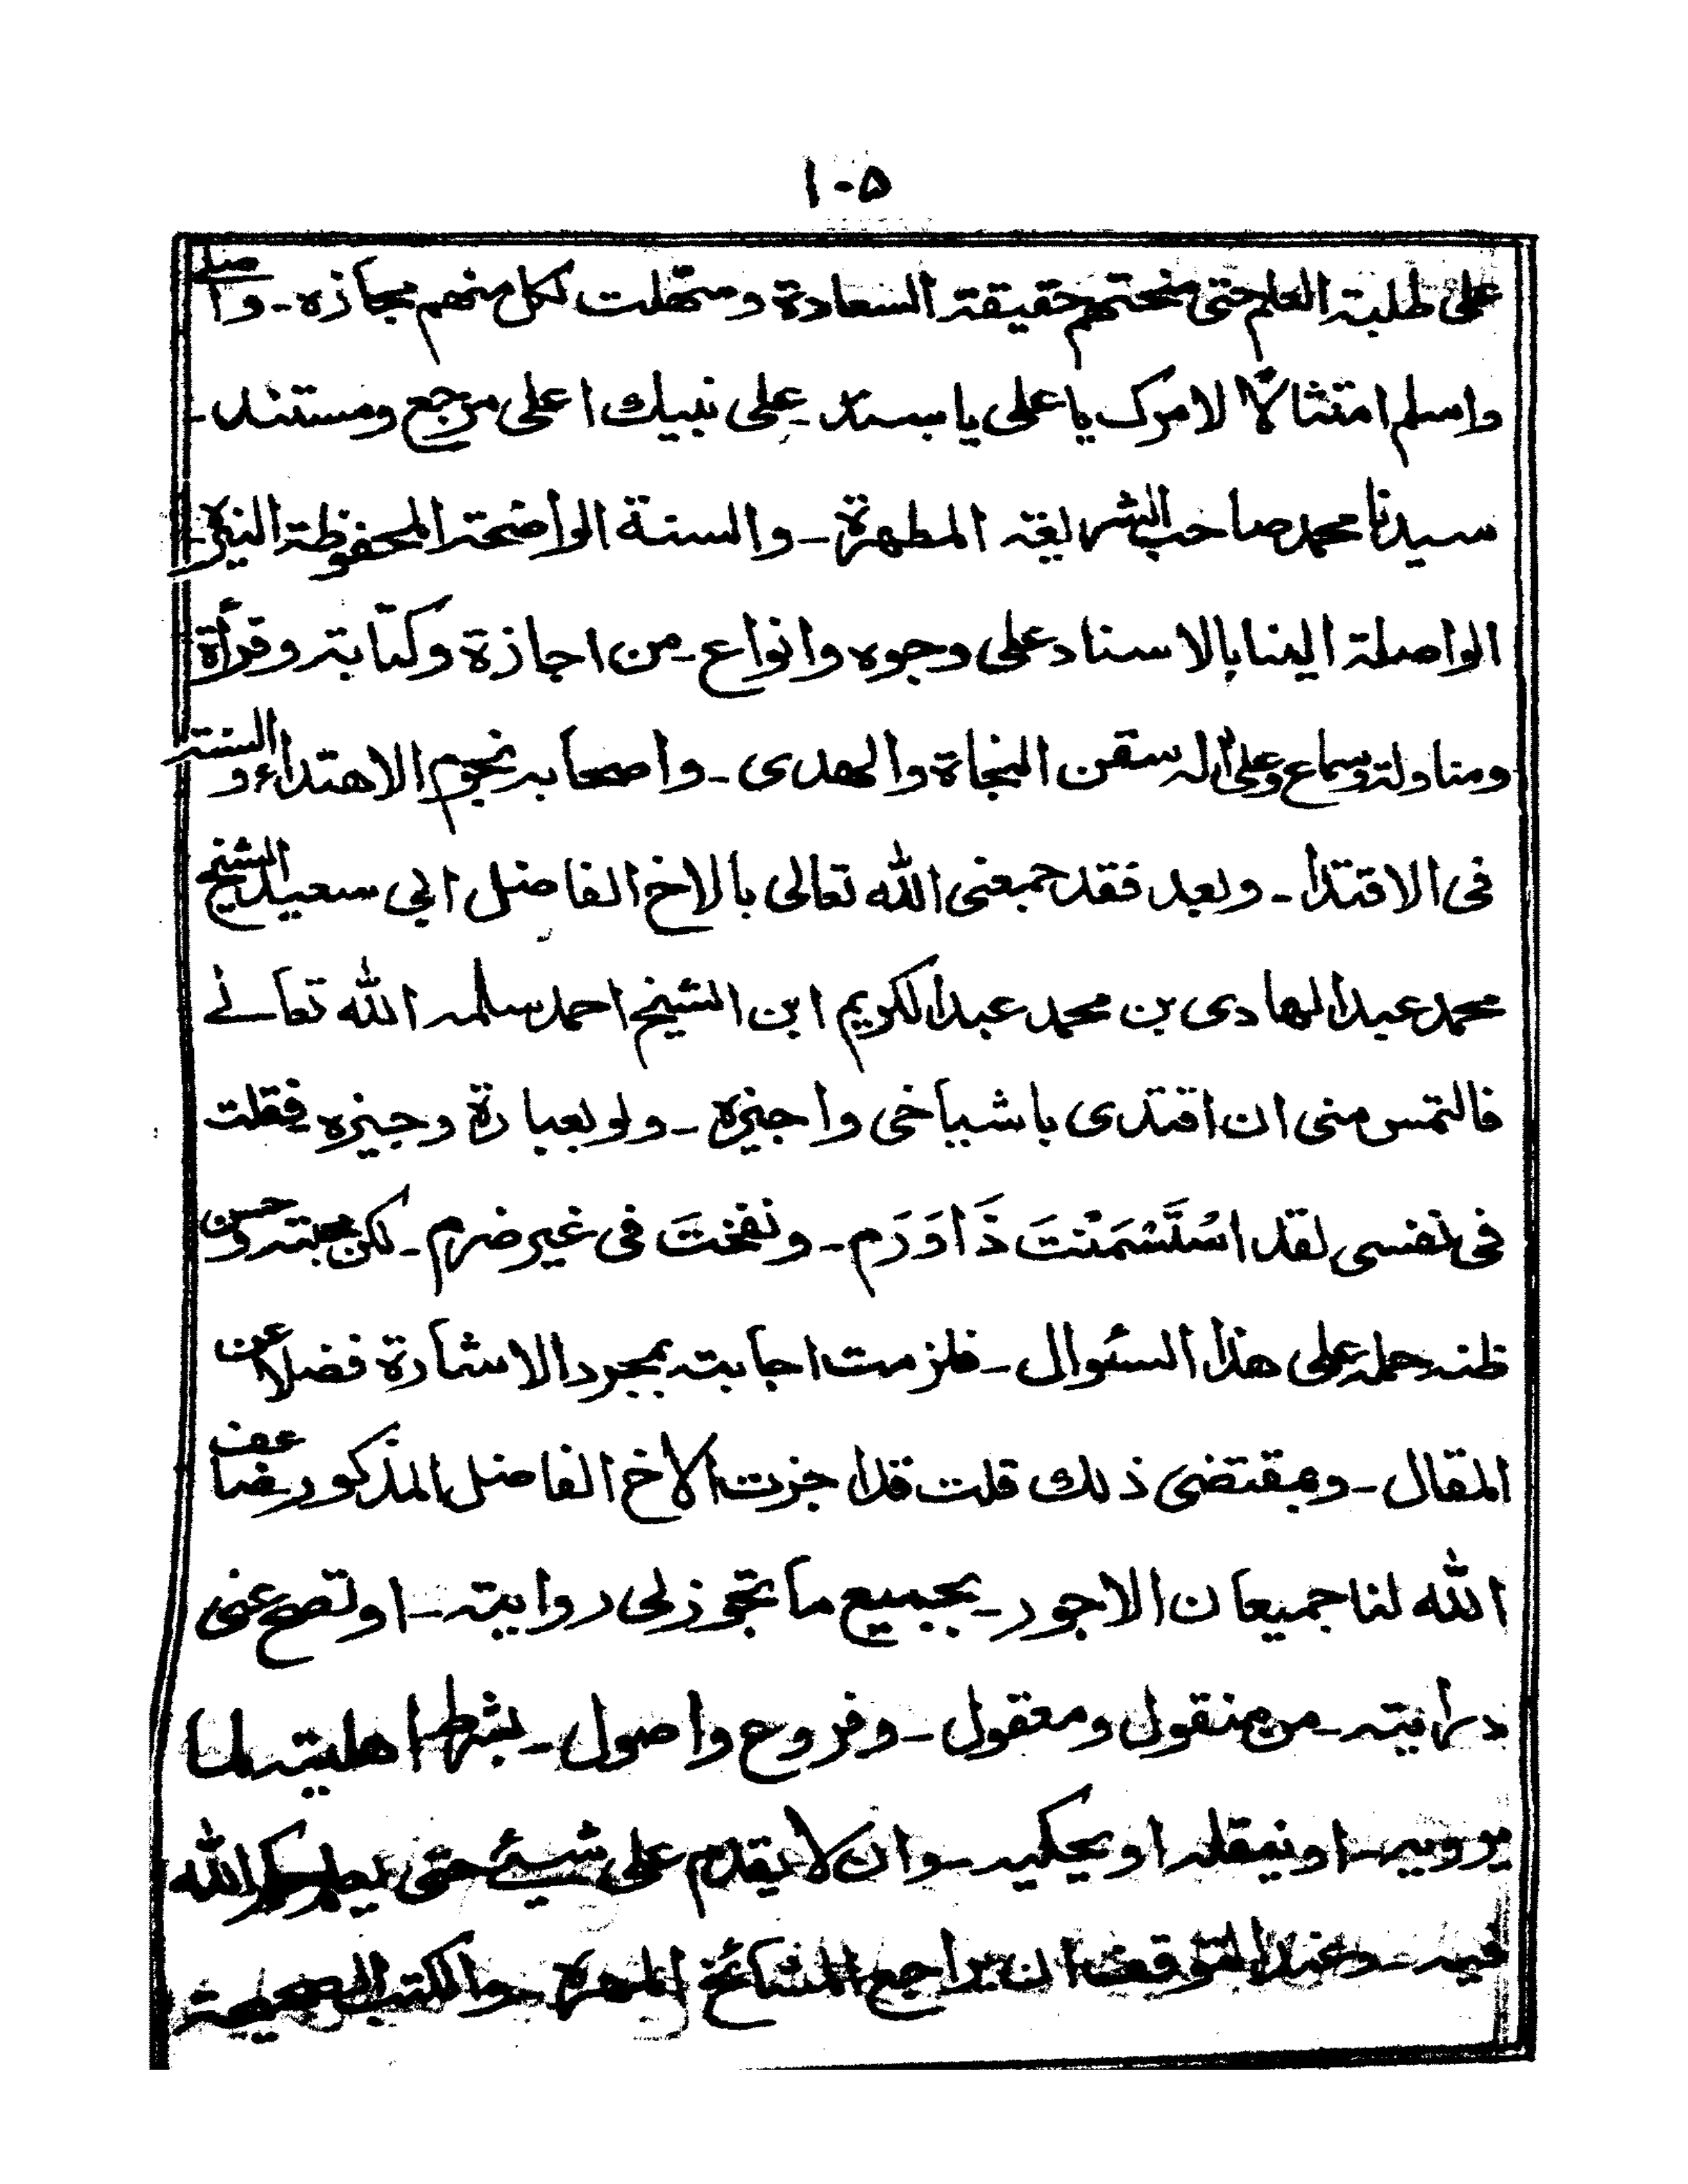 ۱۰۵
على طلبة العلم حتى منحتهم حقيقة السعادة وسهلت لكل منهم مجازه - واصلى
واسلم امتثالاً لامرك يا على يا سند - على نبيك اعلى مرجع ومستند -
سيدنا محمد صاحب الشريعة المطهرة - والسنة الواضحة المحفوظة النيرة -
الواصلة الينا بالاسناد على وجوه وانواع - من اجازة وكتابة وقرأة
ومناولة وسماع وعلى اله سفن النجاة والهدى - واصحابه نجوم الاهتداء والسنة
فى الاقتدا - وبعد فقد جمعنى الله تعالى بالاخ الفاضل ابى سعيد الشيخ
محمد عبد الهادى بن محمد عبد الكريم ابن الشيخ احمد سلمه الله تعالے
فالتمس منى ان اقتدى باشياخى واجيزه - ولو بعبارة وجيزه فقلت
فى نفسى لقد اسْتَسْمَنْتَ ذَا وَرَم - ونفختَ فى غير ضرم - لكن محبته وحسن
ظنه حمله على هذا السئوال - فلزمت اجابته بمجرد الاشارة فضلا عن
المقال - وبمقتضى ذلك قلت قد اجزت الاخ الفاضل المذكور ضاعف
الله لنا جميعا ن الاجور - بجميع ما تجوز لى روايته - او تصح عنى
درايته - من منقول ومعقول - وفروع واصول - بشرط اهليته لما
يرويه - او ينقله او يحكيه - وان لا يقدم على شيئ حتى يعلم حكم الله
فيه - وعند التوقف ان يراجع المشائخ المهرة - والكتب الصحيحة